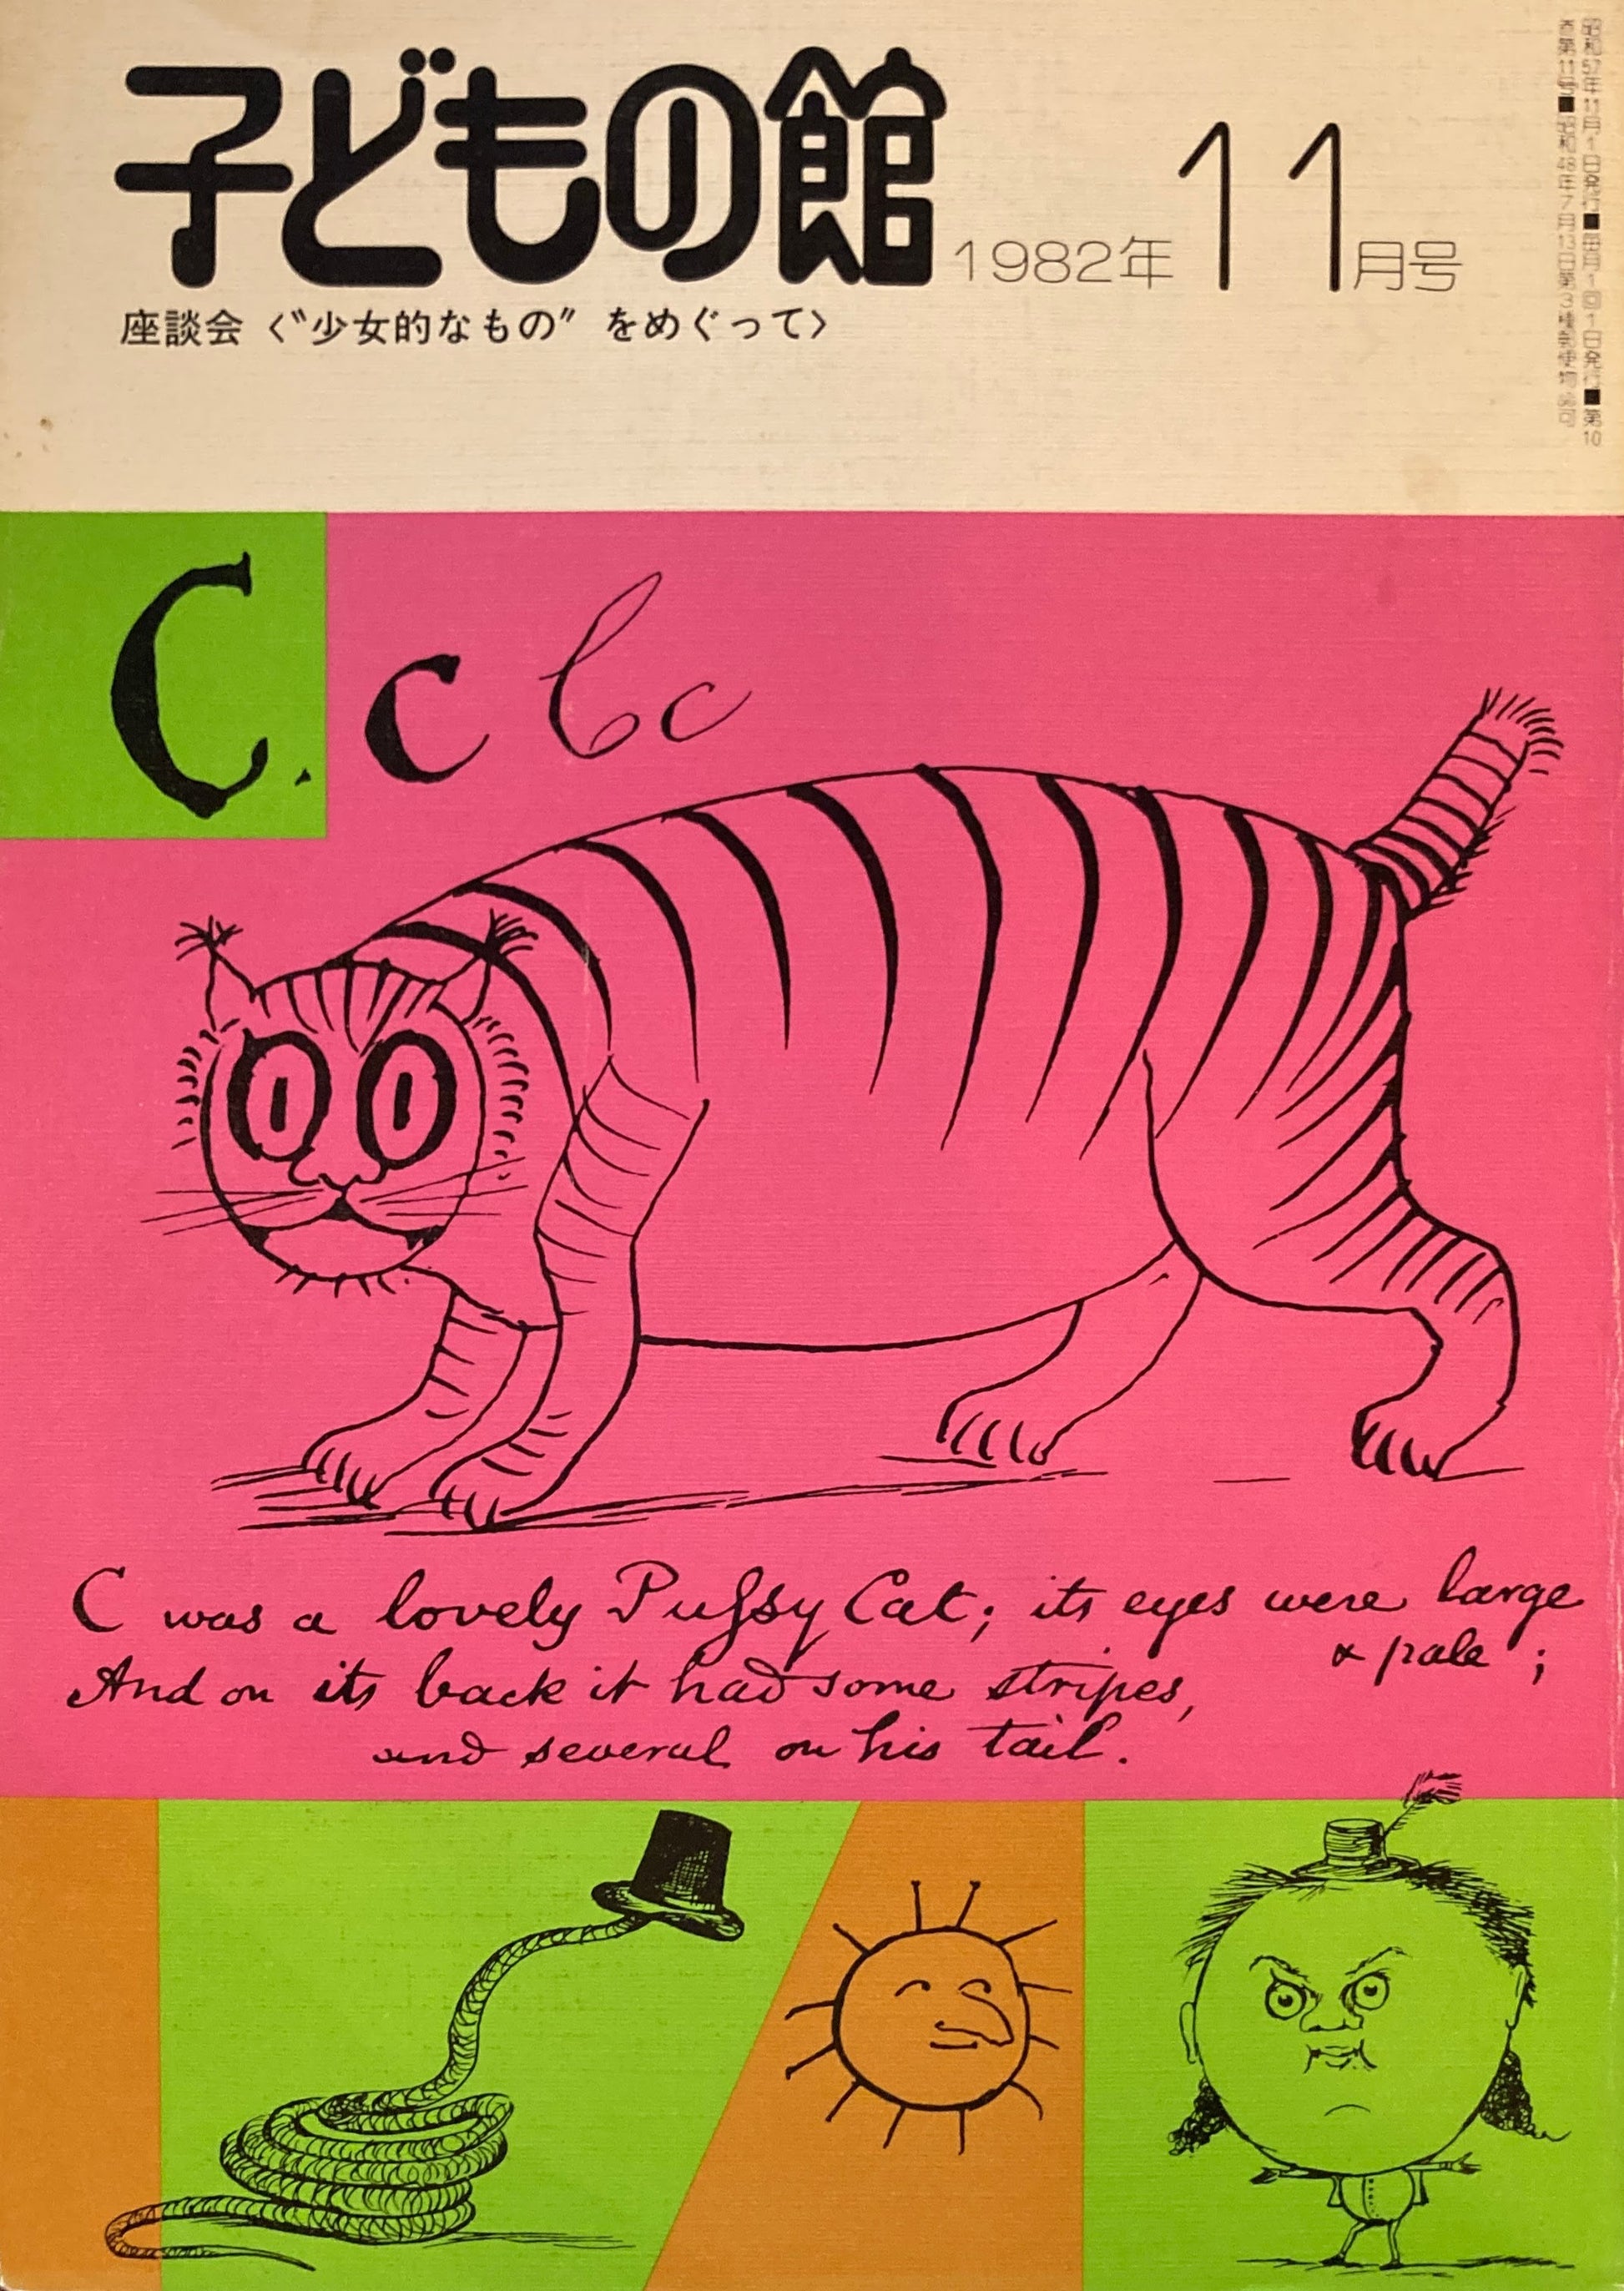 子どもの館
1982年11月号
座談会〈〝少女的なもの〟をめぐって〉
昭和57年11月1日発行■毎月1回1日発行■第10
巻第11号■昭和48年7月13日第3種郵便物認可
C. c C c
C was a lovely Pussy Cat; its eyes were large
& pale ;
And on its back it had some stripes,
and several on his tail.